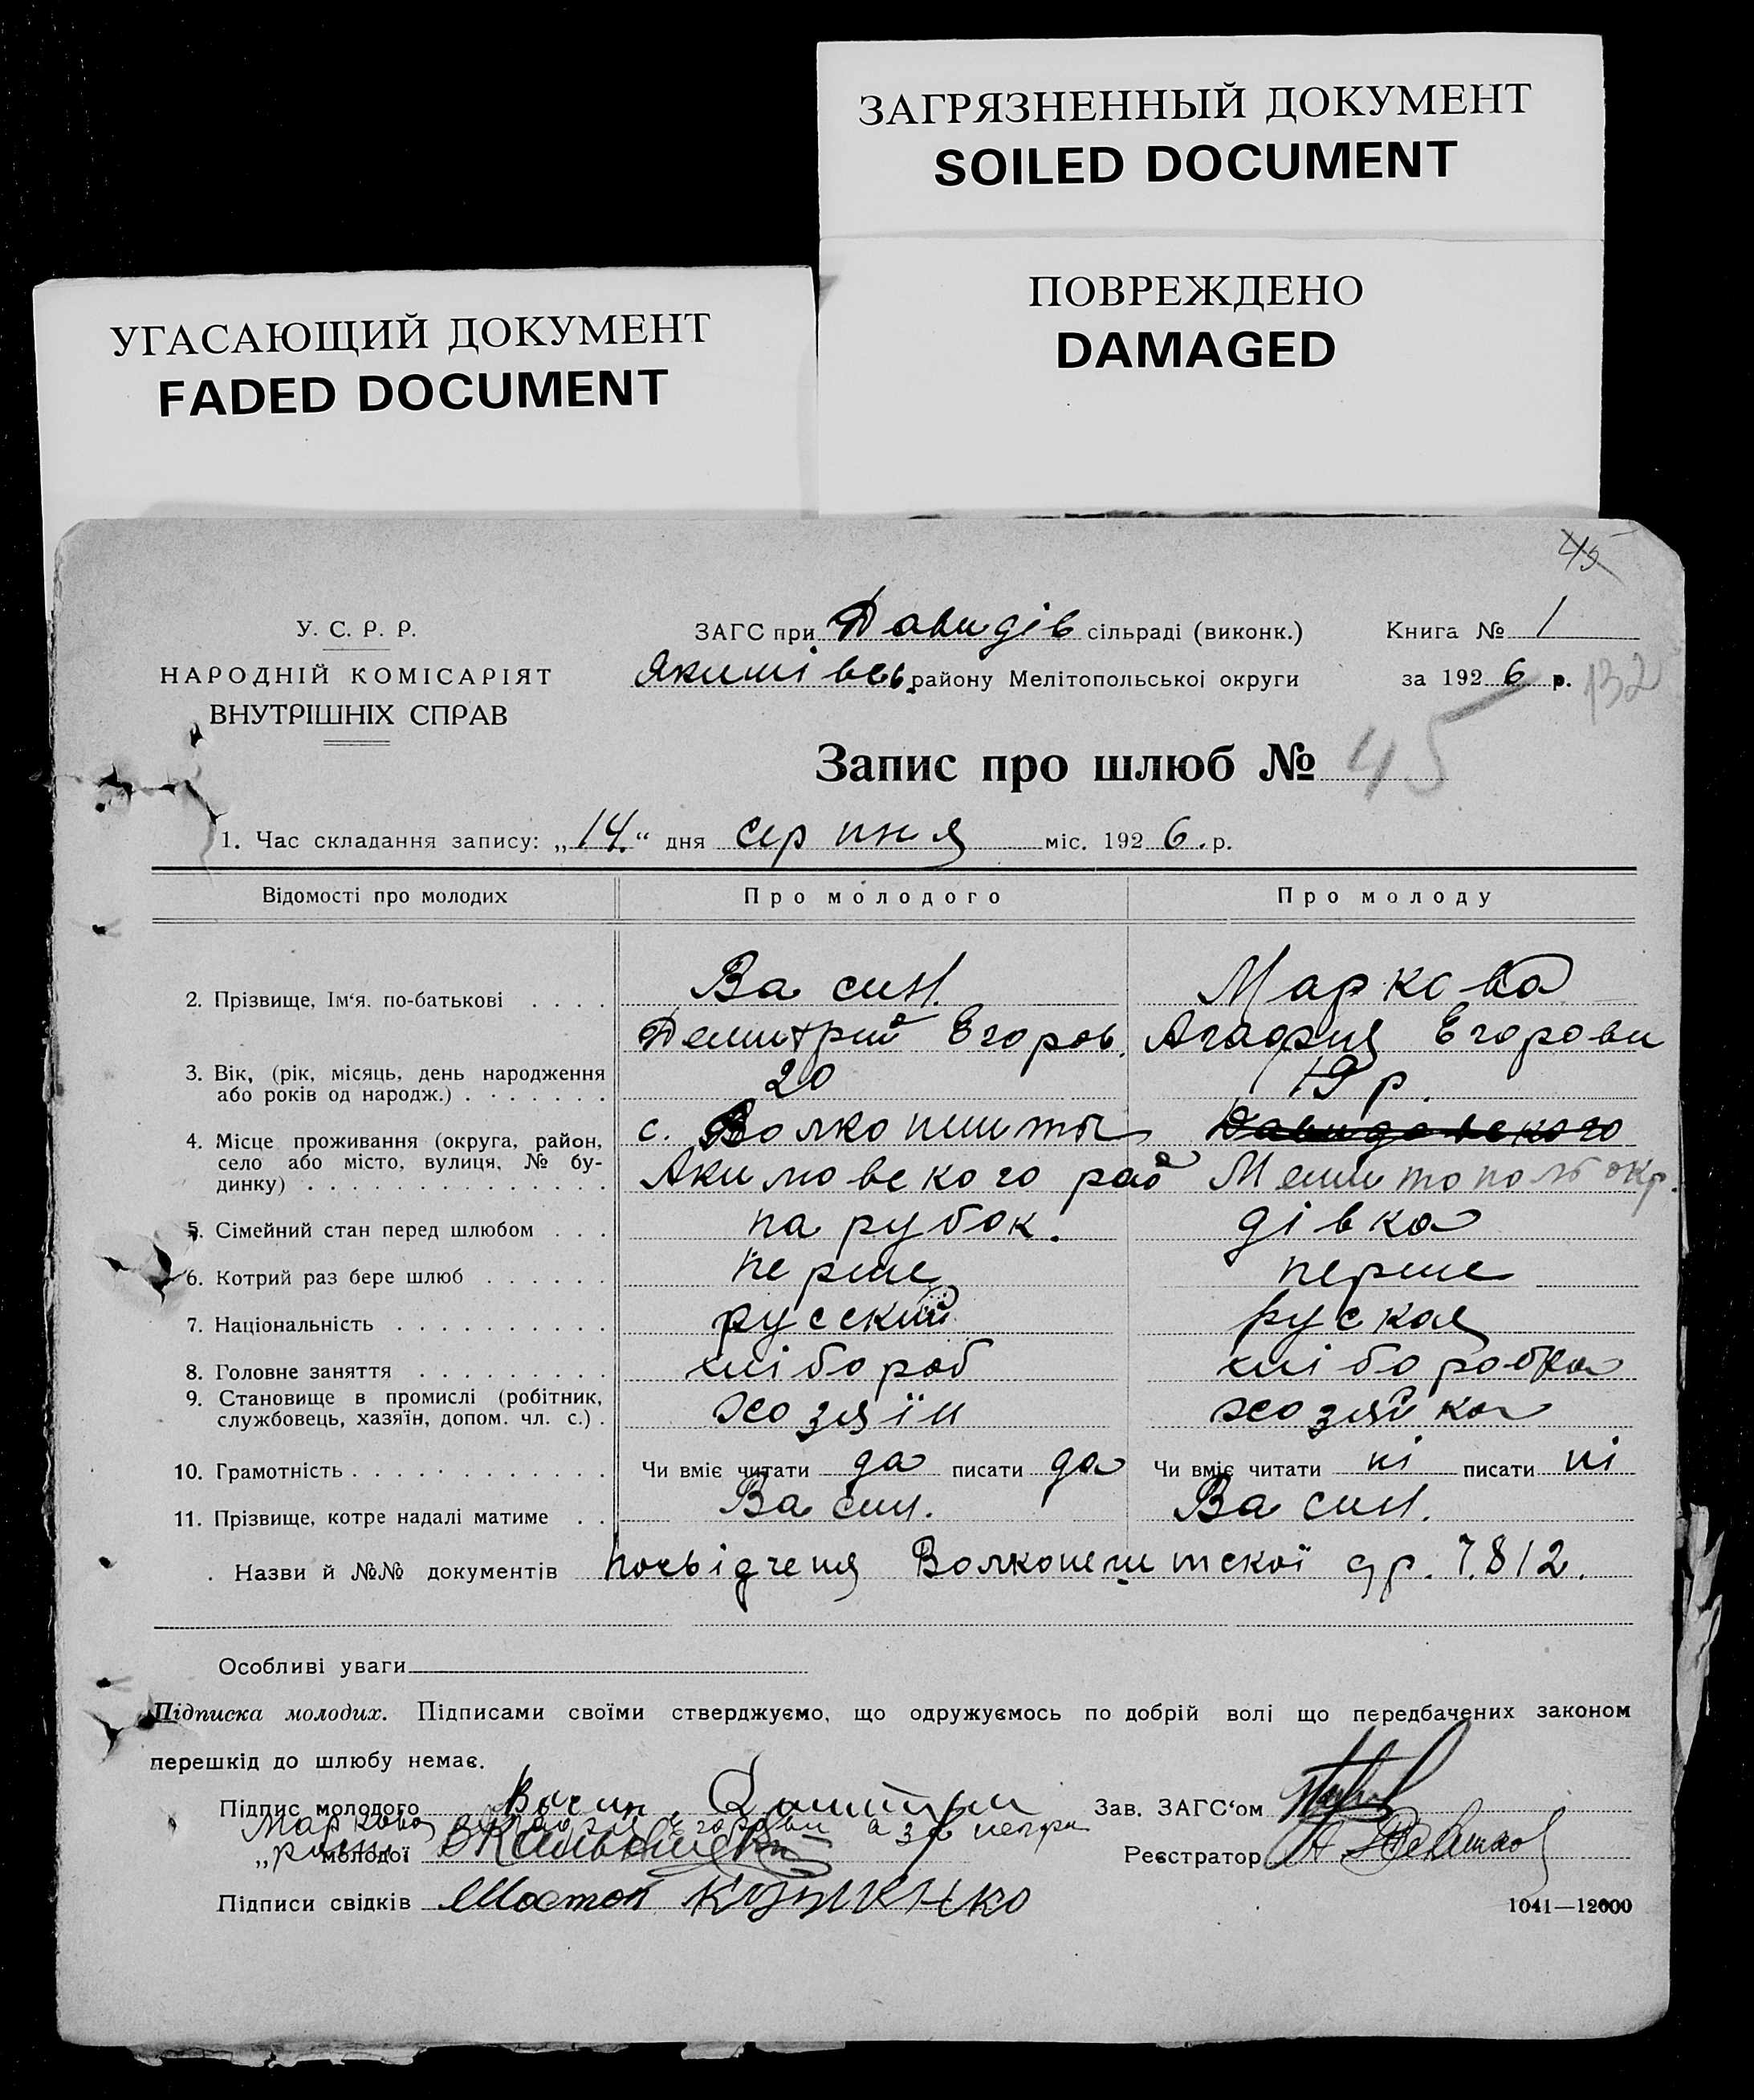 ЗАГРЯЗНЕННЫЙ ДОКУМЕНТ
SOILED DOCUMENT
ПОВРЕЖДЕНО
DAMAGED
УГАСАЮЩИЙ ДОКУМЕНТ
FADED DOCUMENT
45
У. С. Р. Р.
НАРОДНІЙ КОМІСАРІЯТ
ВНУТРІШНІХ СПРАВ
ЗАГС при Давидів сільраді (виконк.)
Якимівсь. району Мелітопольської округи
Книга № 1
за 192 6 р. 132
Запис про шлюб № 45
1. Час складання запису: „14.“ дня серпня міс. 192 6. р.
Відомості про молодих Про молодого Про молоду
2. Прізвище, Ім‘я. по-батькові . . . . Васил. Маркова
Демитрий Егоров. Агафия Егорови
3. Вік, (рік, місяць, день народження
або років од народж.) . . . . . . . 20 19 р.
4. Місце проживання (округа, район,
село або місто, вулиця, № бу-
динку) . . . . . . . . . . . . . .
с. Волконешты Давидовского
Акимовского рай Мелитополь окр.
5. Сімейний стан перед шлюбом . . . парубок. дівка
6. Котрий раз бере шлюб . . . . . . перше перше
7. Національність . . . . . . . . . . русский руская
8. Головне заняття . . . . . . . . . хлібороб хліборобка
9. Становище в промислі (робітник,
службовець, хазяїн, допом. чл. с.) . хозяїн хозяйка
10. Грамотність . . . . . . . . . . . . Чи вміє читати да писати да Чи вміє читати ні писати ні
11. Прізвище, котре надалі матиме . . Васил. Васил.
. Назви й №№ документів посьвідченя Волконештской др. 7.812.
Особливі уваги
Підписка молодих. Підписами своїми стверджуємо, що одружуємось по добрій волі що передбачених законом
перешкід до шлюбу немає.
Підпис молодого Зав. ЗАГС‘ом
Маркова Егорови а за негра
„ молодої Реєстратор
Підписи свідків
1041—12000